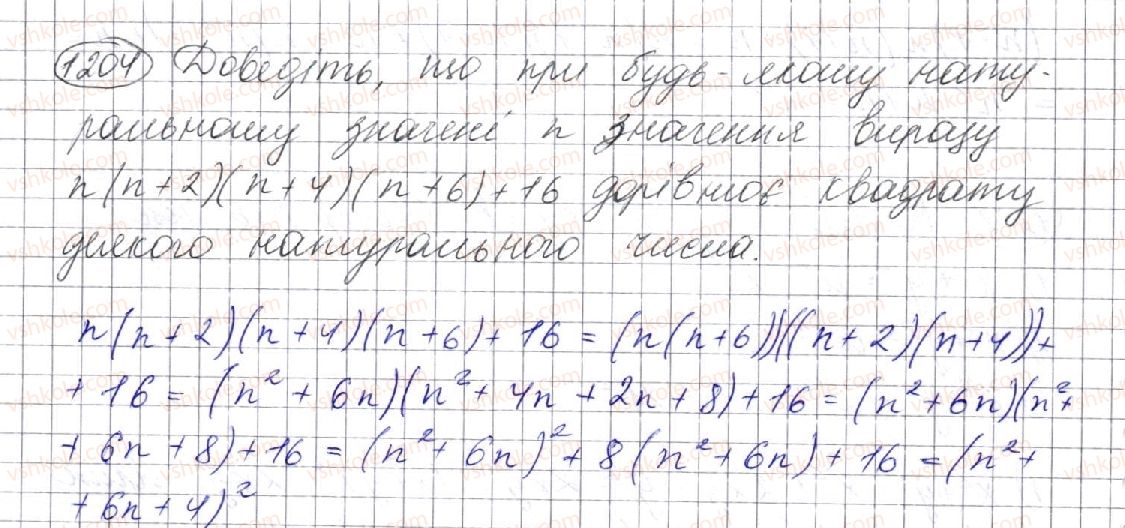 1204 Доведіть, що при будь-якому нату-
ральному значені n значення виразу
n(n+2)(n+4)(n+6)+16 дорівнює квадрату
деякого натурального числа.
n(n+2)(n+4)(n+6)+16 = (n(n+6))((n+2)(n+4))+
+16 = (n²+6n)(n²+4n+2n+8)+16 = (n²+6n)(n²+
+6n+8)+16 = (n²+6n)²+8(n²+6n)+16 = (n²+
+6n+4)²